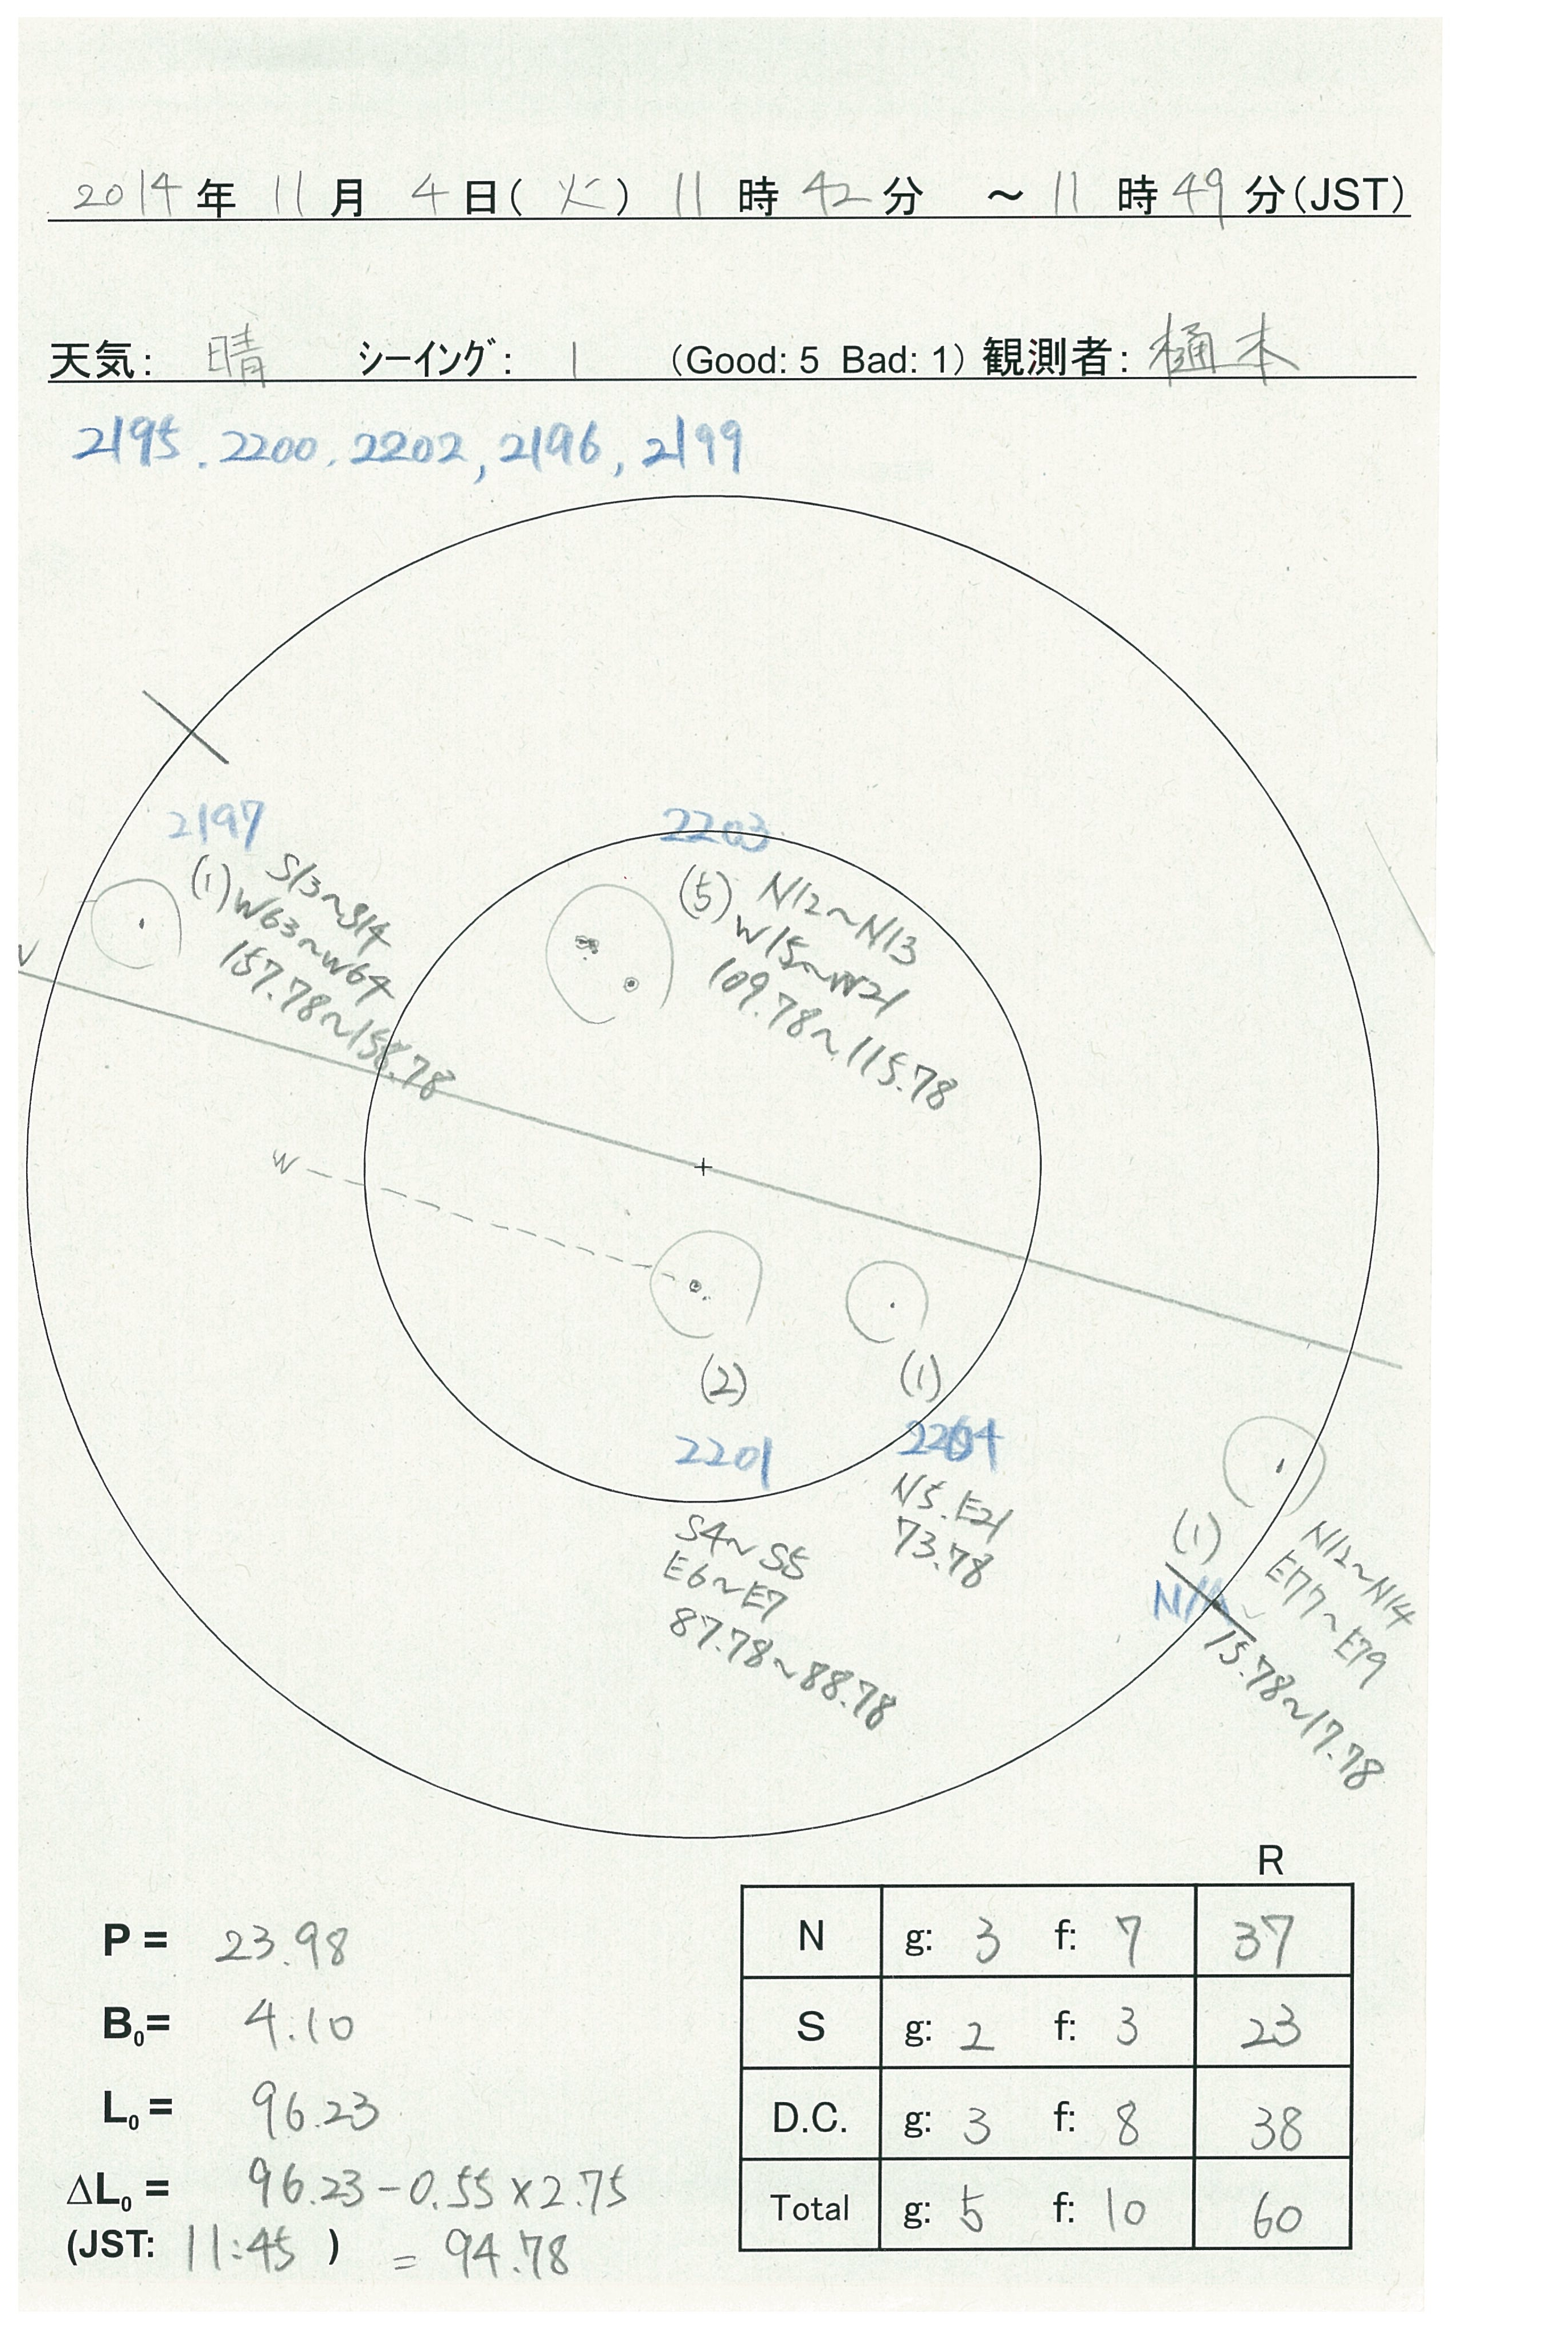 2014年 11月 4日(火) 11時42分 ～11時49分(JST)
天気: 晴 シーイング: 1 (Good: 5 Bad: 1) 観測者: 樋本
2195. 2200. 2202, 2196, 2199
2197
(1) S13~S14
W63~W64
157.78~158.78
2203
(5) N12~N13
W15~W21
109.78~115.78
W
W
(2)
2201
S4~S5
E6~E7
87.78~88.78
(1)
2204
N5.E21
73.78
(1)
N/A
N12~N14
E77~E79
15.78~17.78
R
N g: 3 f: 7 37
S g: 2 f: 3 23
D.C. g: 3 f: 8 38
Total g: 5 f: 10 60
P = 23.98
B0= 4.10
L0 = 96.23
ΔL0 = 96.23-0.55×2.75
(JST: 11:45 ) = 94.78